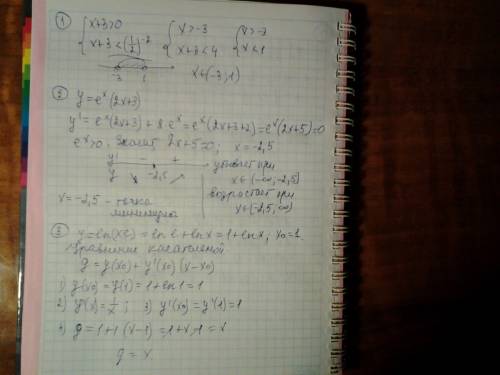 1) { x+3>0   { x>-3   { x>-3
{ x+3<(1/2)^-2   { x+3<4   { x<1
-3   1   x∈(-3;1)
2) y=e^x(2x+3)
y'=e^x(2x+3)+2·e^x=e^x(2x+3+2)=e^x(2x+5)=0
e^x>0, Значит 2x+5=0; x=-2,5
y' - + убывает при
y ↘ -2,5 ↗ x∈(-∞;-2,5]
возростает при
x=-2,5 - точка x∈(-2,5,∞)
минимума
3) y=ln(xe)=ln e+lnx=1+lnx, x0=1
Уравнение касательной
g=y(x0)+y'(x0)(x-x0)
1) y(x0)=y(1)=1+ln1=1
2) y'(x)=1/x; 3) y'(x0)=y'(1)=1
4) g=1+1·(x-1)=1+x-1=x
g=x